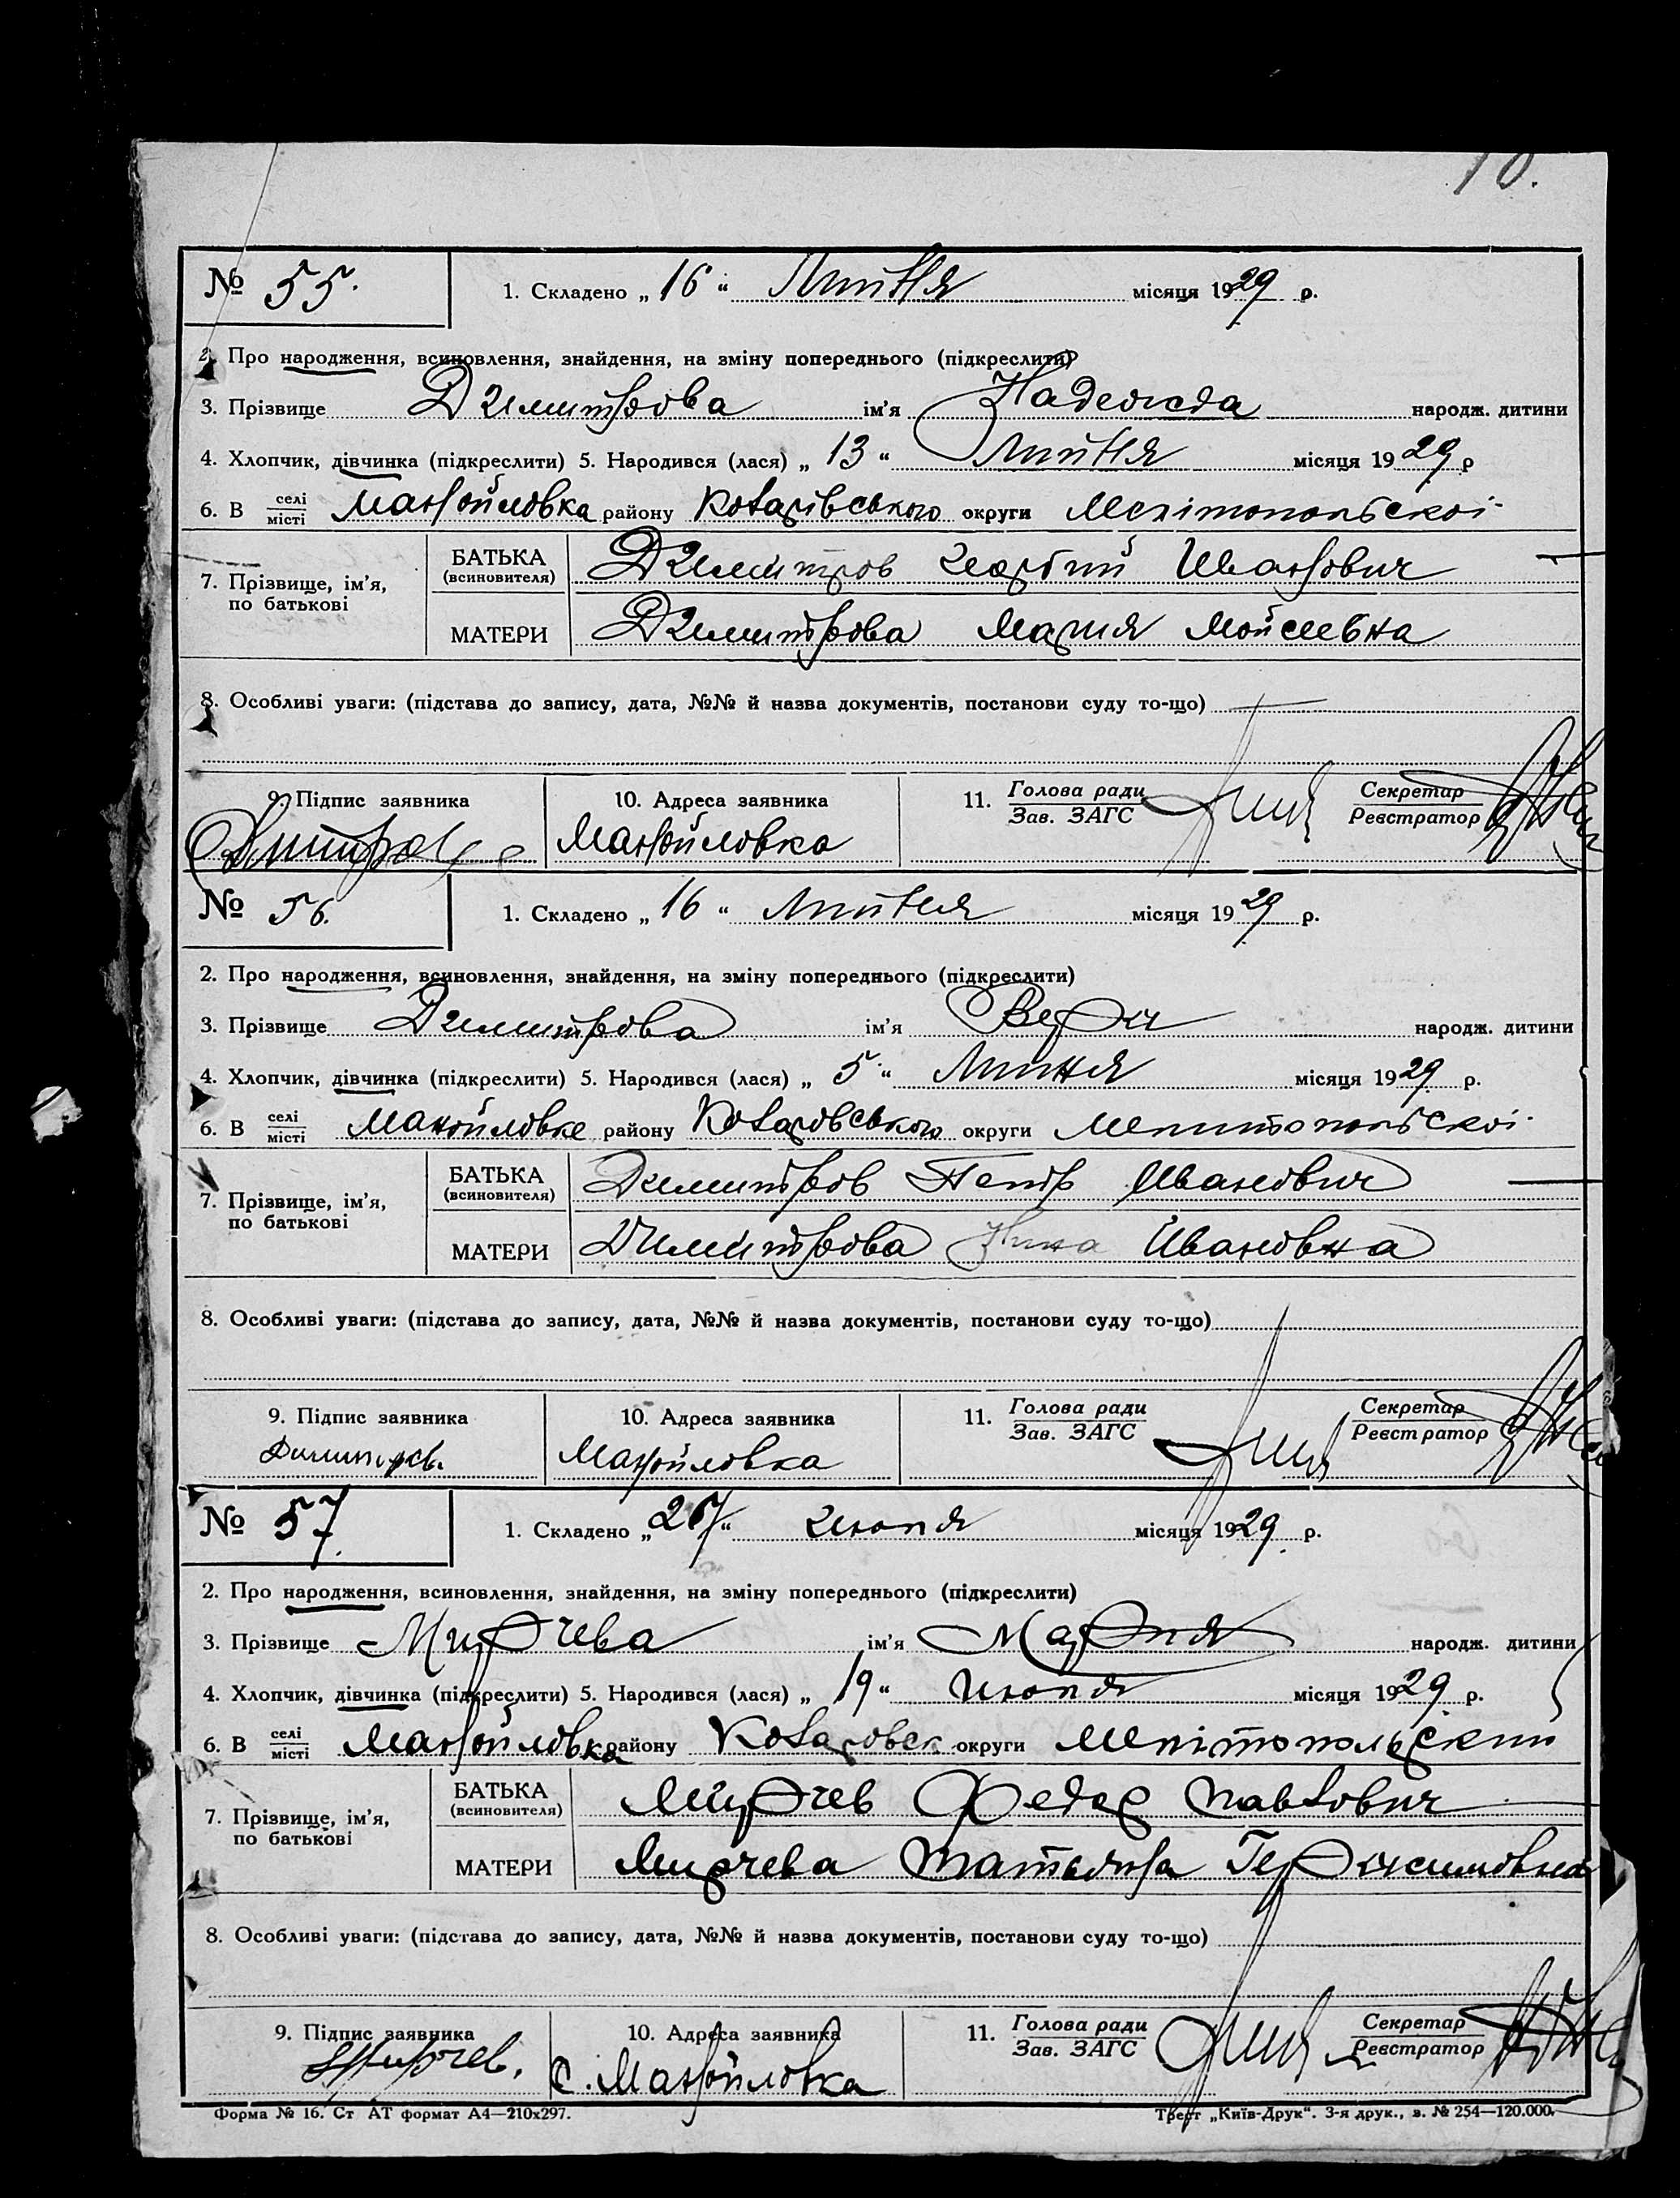 10.
№ 55. 1. Складено „ 16 “ Липня місяця 1929 р.
2. Про народження, всиновлення, знайдення, на зміну попереднього (підкреслити)
3. Прізвище Димитрова ім'я Надежда народж. дитини
4. Хлопчик, дівчинка (підкреслити) 5. Народився (лася) „ 13 “ Липня місяця 1929 р
6. В селі місті Манойловка району округи Мелітопольскоі
7. Прізвище, ім'я, по батькові
БАТЬКА (всиновителя) Димитров Георгий Иванович
МАТЕРИ Димитрова Мария Мойсеевна
8. Особливі уваги: (підстава до запису, дата, №№ й назва документів, постанови суду то-що)
9. Підпис заявника 10. Адреса заявника 11. Голова ради Зав. ЗАГС Секретар Реєстратор
Манойловка
№ 56. 1. Складено „ 16 “ Липня місяця 1929 р.
2. Про народження, всиновлення, знайдення, на зміну попереднього (підкреслити)
3. Прізвище Димитрова ім'я Вера народж. дитини
4. Хлопчик, дівчинка (підкреслити) 5. Народився (лася) „ 5 “ Липня місяця 1929 р.
6. В селі місті Манойловке району округи Мелитопольскоі
7. Прізвище, ім'я, по батькові
БАТЬКА (всиновителя) Димитров Петр Иванович
МАТЕРИ Димитрова Нина Ивановна
8. Особливі уваги: (підстава до запису, дата, №№ й назва документів, постанови суду то-що)
9. Підпис заявника 10. Адреса заявника 11. Голова ради Зав. ЗАГС Секретар Реєстратор
Манойловка
№ 57. 1. Складено „ “ Июля місяця 1929 р.
2. Про народження, всиновлення, знайдення, на зміну попереднього (підкреслити)
3. Прізвище Мирчева ім'я Мария народж. дитини
4. Хлопчик, дівчинка (підкреслити) 5. Народився (лася) „ 19 “ Июля місяця 1929 р.
6. В селі місті Манойловка району округи Мелітопольский
7. Прізвище, ім'я, по батькові
БАТЬКА (всиновителя) Мирчев Федор Павлович
МАТЕРИ Мирчева Татьяна Герасимовна
8. Особливі уваги: (підстава до запису, дата, №№ й назва документів, постанови суду то-що)
9. Підпис заявника 10. Адреса заявника 11. Голова ради Зав. ЗАГС Секретар Реєстратор
Мирчев. с. Манойловка
Форма № 16. Ст АТ формат А4—210х297. Трест „Київ-Друк“. 3-я друк., з. № 254—120.000.